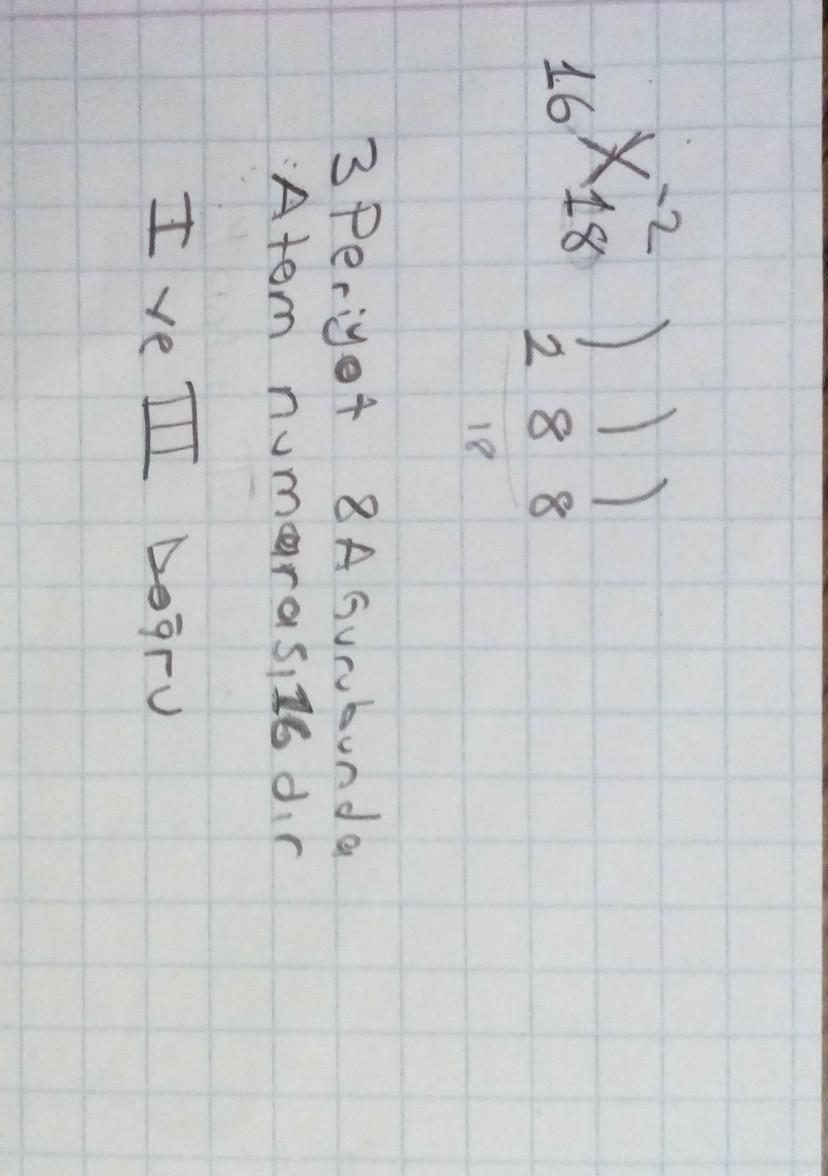 16 X -2 18 ) ) )
2 8 8
18
3 Periyot 8A Gurubunda
Atom numarası 16 dır
I ve III Doğru